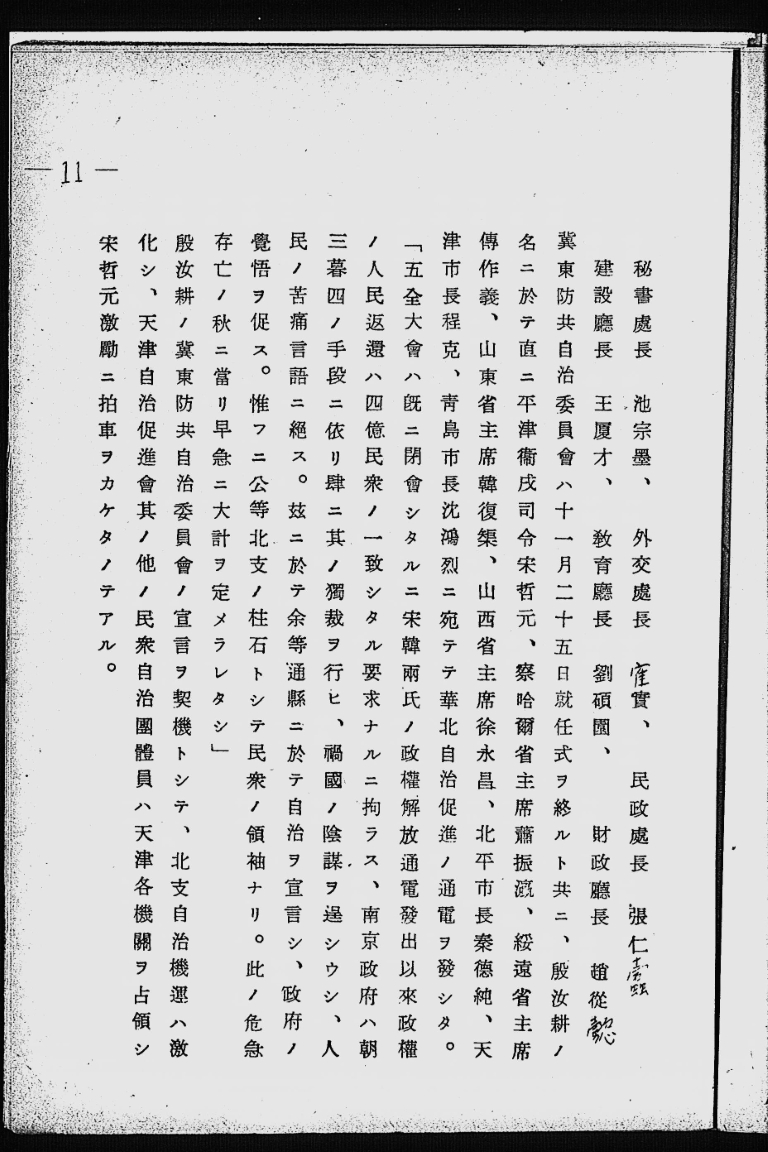 — 11 —
秘書處長　池宗墨、　外交處長　實、　民政處長　張仁蠡
建設廳長　王厦才、　敎育廳長　劉碩圖、　財政廳長　趙從懿
冀東防共自治委員會ハ十一月二十五日就任式ヲ終ルト共ニ、殷汝耕ノ
名ニ於テ直ニ平津衞戌司令宋哲元、察哈爾省主席蕭振瀛、綏遠省主席
傳作義、山東省主席韓復榘、山西省主席徐永昌、北平市長秦德純、天
津市長程克、靑島市長沈鴻烈ニ宛テテ華北自治促進ノ通電ヲ發シタ。
「五全大會ハ旣ニ閉會シタルニ宋韓兩氏ノ政權解放通電發出以來政權
ノ人民返還ハ四億民衆ノ一致シタル要求ナルニ拘ラス、南京政府ハ朝
三暮四ノ手段ニ依リ肆ニ其ノ獨裁ヲ行ヒ、禍國ノ陰謀ヲ逞シウシ、人
民ノ苦痛言語ニ絕ス。玆ニ於テ余等通縣ニ於テ自治ヲ宣言シ、政府ノ
覺悟ヲ促ス。惟フニ公等北支ノ柱石トシテ民衆ノ領袖ナリ。此ノ危急
存亡ノ秋ニ當リ早急ニ大計ヲ定メラレタシ」
殷汝耕ノ冀東防共自治委員會ノ宣言ヲ契機トシテ、北支自治機運ハ激
化シ、天津自治促進會其ノ他ノ民衆自治團體員ハ天津各機關ヲ占領シ
宋哲元激勵ニ拍車ヲカケタノテアル。